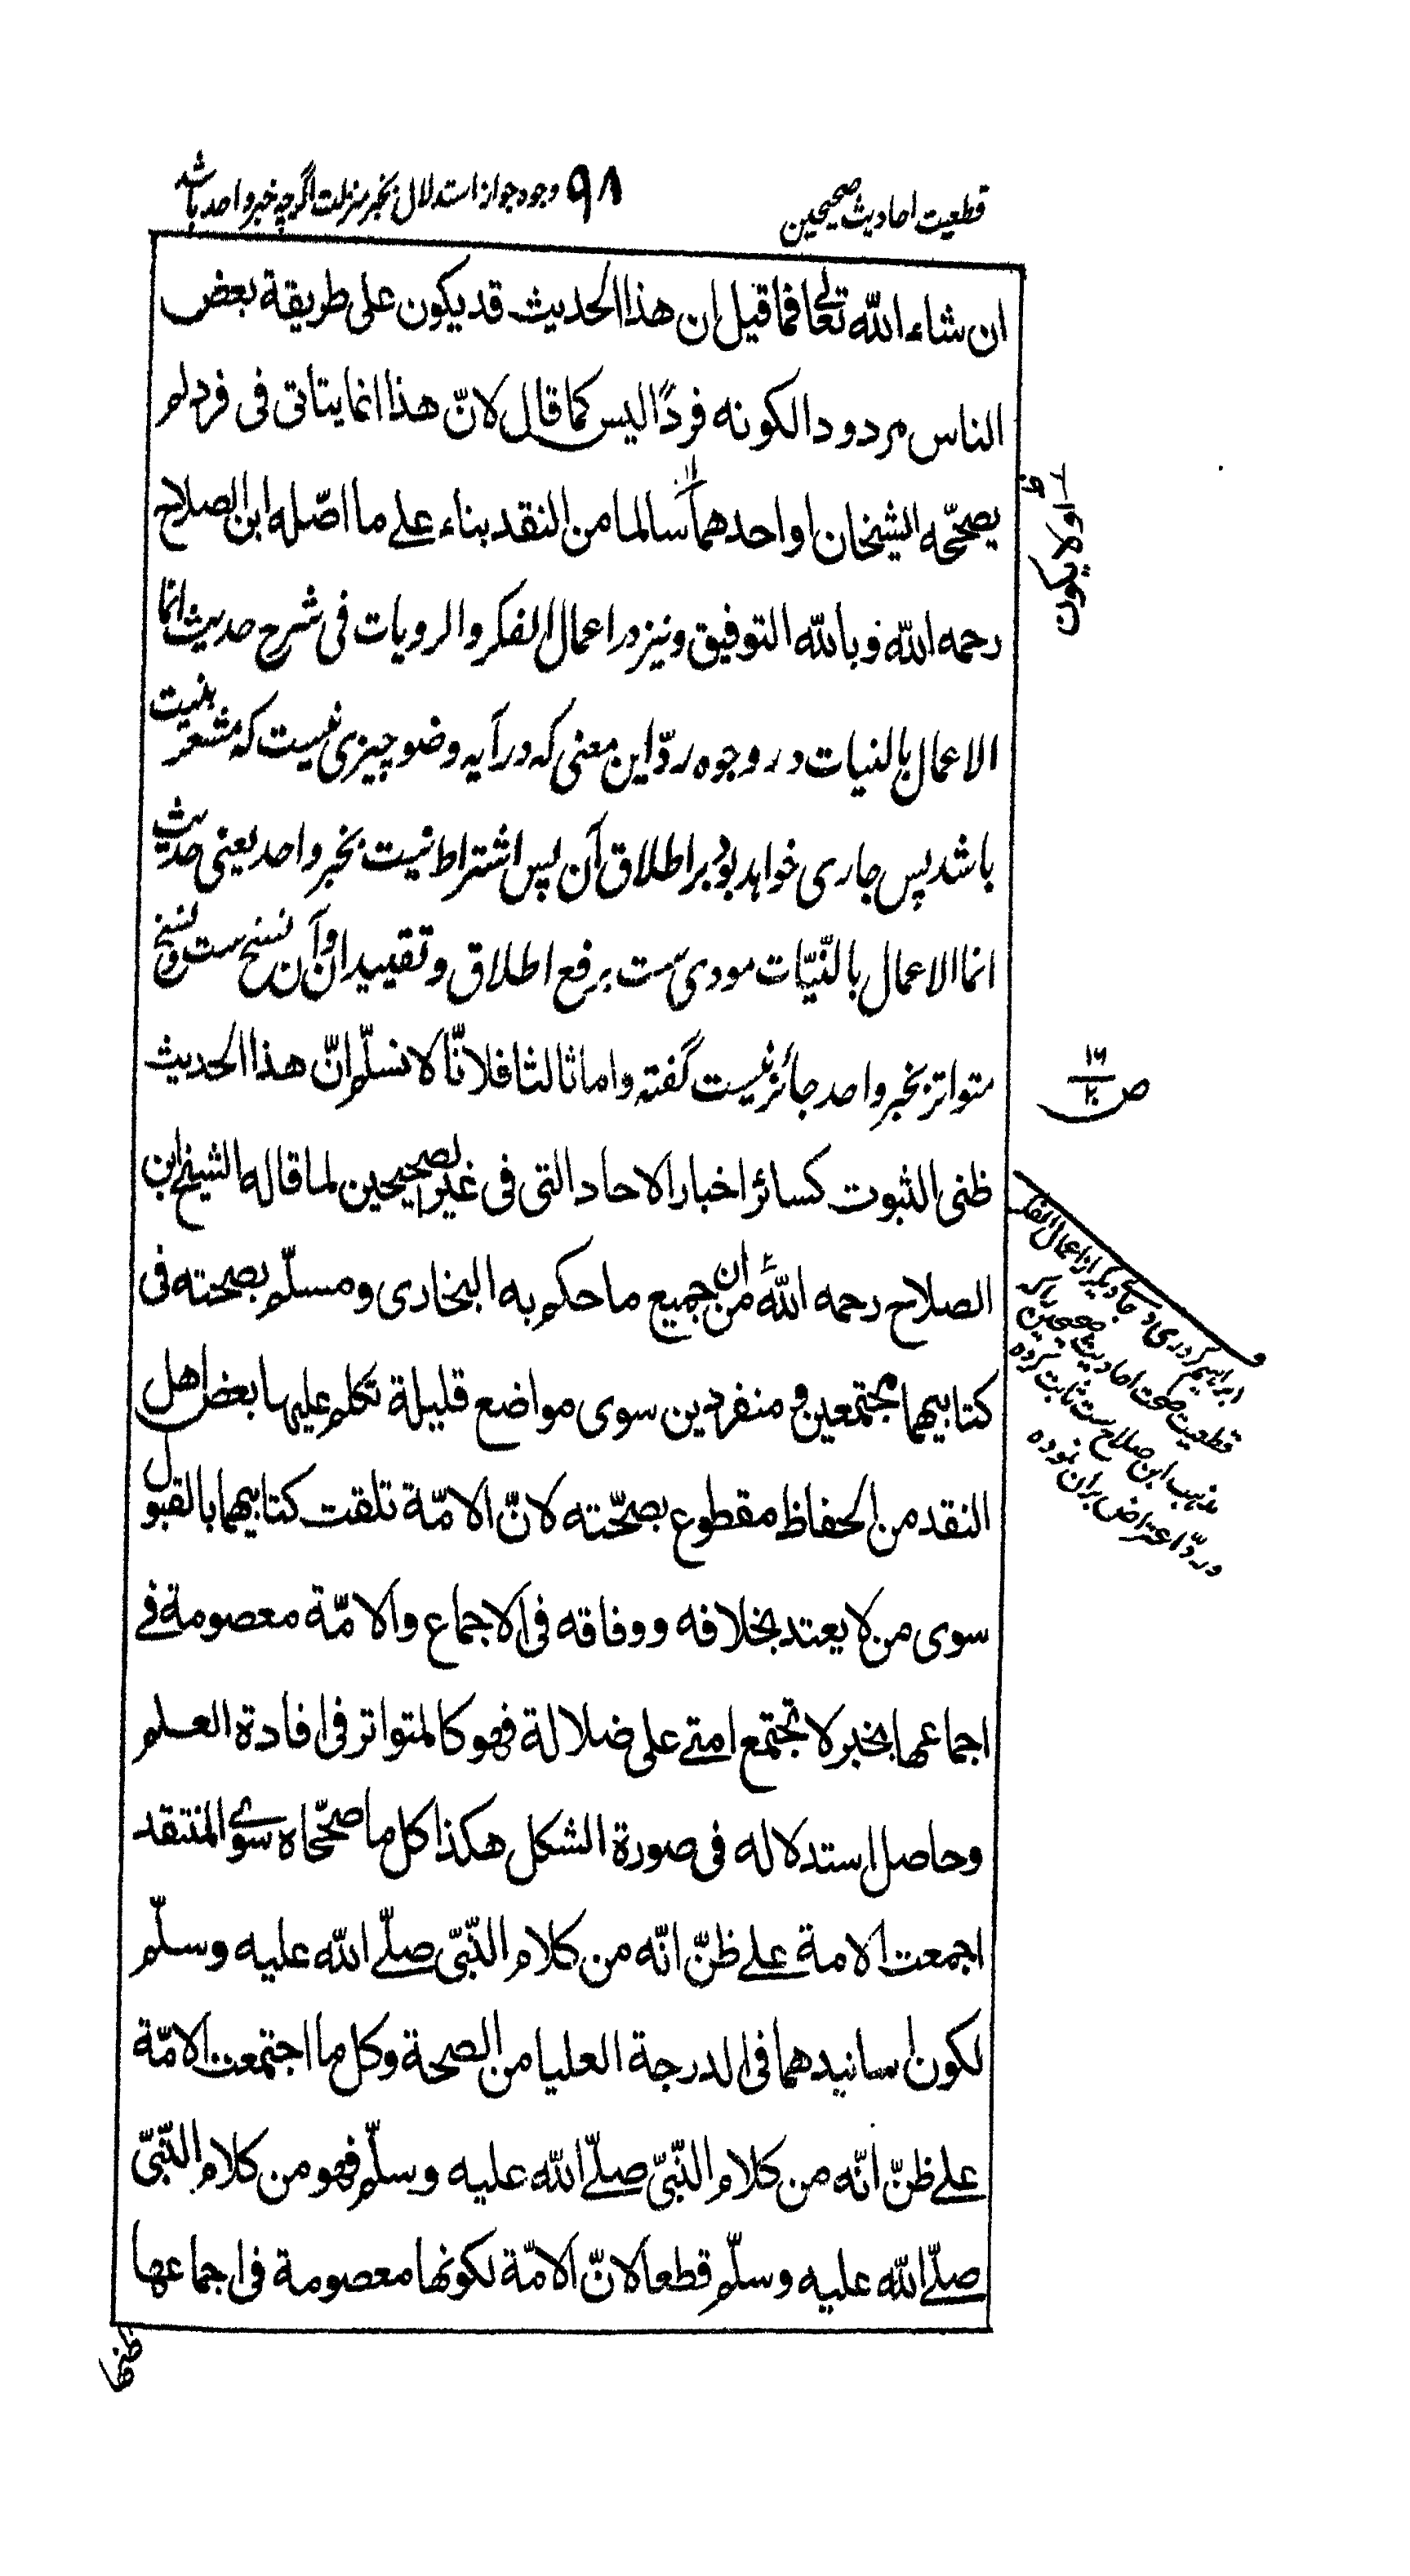 قطعیت احادیث صحیحین
۹۸
وجوه جواز استدلال بخبر منزلت اگرچه خبر واحد باشد
ان شاء الله تعالی فما قیل ان هذا الحدیث قد یکون علی طریقة بعض
الناس مردودا لکونه فردًا لیس کما قال لانّ هذا انما یتاتی فی فرد لم
یصحّحه الشیخان او احدهما سالما من النقد بناء علے ما اصّله ابن الصلاح
رحمه الله وبالله التوفیق ونیز در اعمال الفکر والرویات فی شرح حدیث انما
الاعمال بالنیات در وجوه ردّ این معنی که در آیه وضو چیزی نیست که مشعر بنیت
باشد پس جاری خواهد بود بر اطلاق آن پس اشتراط نیت بخبر واحد یعنی حدیث
انما الاعمال بالنّیّات مودی ست برفع اطلاق و تقیید ان و آن نسخ ست و نسخ
متواتر بخبر واحد جائز نیست گفته واما ثالثا فلانّا لا نسلّم انّ هذا الحدیث
ظنی الثبوت کسائر اخبار الاحاد التی فی غیر الصحیحین لما قاله الشیخ ابن
الصلاح رحمه الله من ان جمیع ما حکم به البخاری ومسلّم بصحته فی
کتابیهما مجتمعین و منفردین سوی مواضع قلیلة تکلم علیها بعض اهل
النقد من الحفاظ مقطوع بصحّته لانّ الامّة تلقت کتابیهما بالقبول
سوی من لا یعتد بخلافه ووفاقه فی الاجماع والامّة معصومة فے
اجماعها بخبر لا تجتمع امتے علی ضلالة فهو کالمتواتر فی افادة العلم
وحاصل استدلاله فی صورة الشکل هکذا کل ما صحّحاه سوے المنتقد
اجمعت الامة علے ظنّ انّه من کلام النّبیّ صلّے الله علیه وسلّم
لکون اسانیدهما فی الدرجة العلیا من الصحة وکل ما اجتمعت الامّة
علے ظنّ انّه من کلام النّبیّ صلّے الله علیه وسلّم فهو من کلام النّبیّ
صلّے الله علیه وسلّم قطعا لانّ الامّة لکونها معصومة فی اجماعها
ظنها
اولا یکون
ص ۱۶/۲۰
ابراهیم کردی در جای دیگر از اعمال الفکر
قطعیت صحت احادیث صحیحین را که
مذهب ابن صلاح ست ثابت کرده
و ردّ اعتراض بران نموده